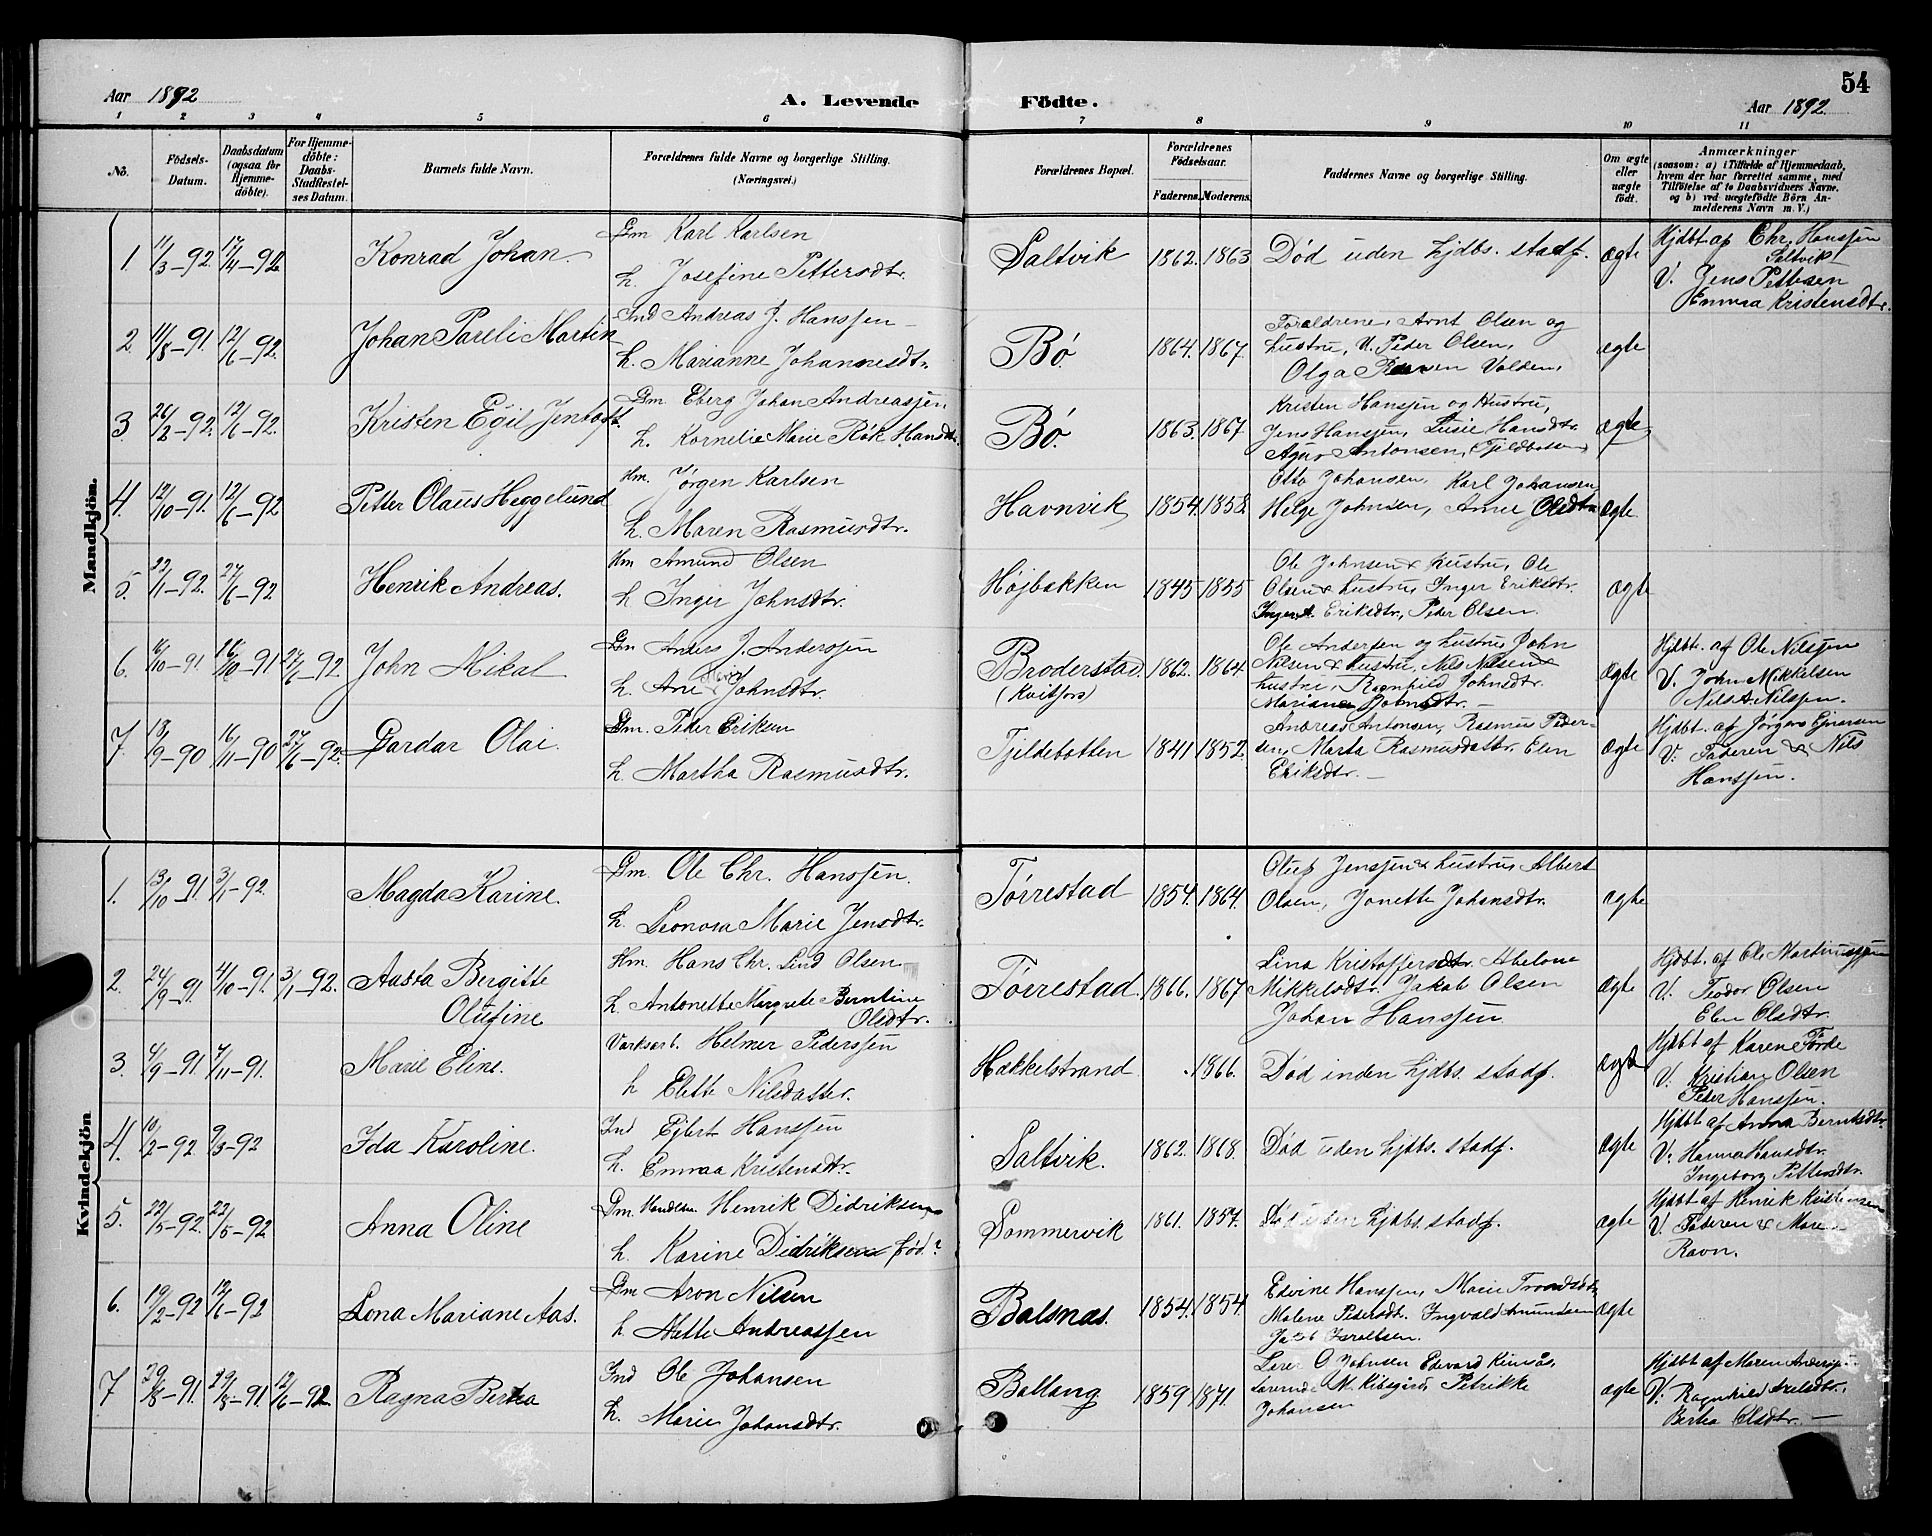 54
Aar 1892
A. Levende Födte.
Aar 1892.
1 2 3 4 5 6 7 8 9 10 11
No.
Födsels-Datum.
Daabsdatum (ogsaa for Hjemme-döbte).
For Hjemme-döbte: Daabs-Stadfæstel-ses Datum.
Barnets fulde Navn.
Forældrenes fulde Navne og borgerlige Stilling. (Næringsvei.)
Forældrenes Bopæl.
Forældrenes Födselsaar.
Faderens. Moderens.
Faddernes Navne og borgerlige Stilling.
Om ægte eller uægte födt.
Anmærkninger
(saasom: a) i Tilfælde af Hjemmedaab,
hvem der har forrettet samme, med
Tilföielse af to Daabsvidners Navne,
og b) ved uægtefödte Börn An-
melderens Navn m. V.)
Mandkjön.
1. 11/3-92. 17/4-92. Konrad Johan. Gm Karl Karlsen
h. Josefine Pettersdtr. Saltvik 1862. 1863 Död uden hjdbs. stadf. ægte Hjdbt. af Chr. Hanssen
Saltvik
V. Jens Pettersen
Emma Kristensdtr.
2. 11/8-91. 12/6-92. Johan Pareli Martin Ind Andreas J. Hanssen
h. Marianne Johannesdtr. Bö. 1864. 1867. Forældrene, Arnt Olsen og
hustru, V. Peder Olsen,
Olga Volden, ægte
3 26/2-92. 12/6-92. Kristen Egil Jentoft. Gm. Eberg Johan Andreassen
h. Kornelie Marie Rök Hansdtr. Bö. 1863. 1867 Kristen Hanssen og Hustru,
Jens Hanssen, Lusie Hansdtr.
Antonsen, ægte
4. 12/10-91. 12/6-92 Petter Olaus Heggelund Hm. Jørgen Karlsen
h. Maren Rasmusdtr. Havnvik 1854. 1858. Otto Johansen, Karl Johansen,
Helge Johnsen, Ane Olsdtr. ægte
5. 22/1-92. 27/6-92 Henrik Andreas. Hm Amund Olsen
h Inger Johnsdtr. Højbakken 1845 1855 Ole Johnsen & Hustru, Ole
Olsen & hustru, Inger Eriksdtr.
Eriksdtr, Peder Olsen. ægte
6. 16/10-91 16/10-91 27/6-92 John Mikal Gm Anders J. Anderssen
h. Ane Johnsdtr. Broderstad.
(Kvitfors) 1862. 1864 Ole Andersen og hustru John
Nilsen & hustru, Nils Nilsen &
hustru, Ragnhild Johnsdtr.
Mariane Johnsdtr. ægte Hjdbt. af Ole Nilssen
V. John Mikkelsen
Nils A. Nilssen.
7. 13/9-90 16/11-90 27/6-92. Gardar Olai. Gm. Peder Eriksen
h. Martha Rasmusdtr. Tjildebotten 1841 1852. Andreas Antonsen, Rasmus Peder-
sen, Marta Rasmusdatter. Elen
Eriksdtr. ægte Hjdbt. af Jørgen Ejnarsen
V. Faderen & Nils
Hanssen.
Kvindekjön
1. 13/10-91. 3/1-92. Magda Karine. Gm. Ole Chr. Hanssen.
h. Leonora Marie Jensdtr. Tørrestad 1854. 1864. Oluf Jenssen & hustru, Albert
Olsen, Jonette Johansdtr. ægte
2. 24/9-91 4/10-91. 3/1-92. Aasta Bergitte
Olufine Hm. Hans Chr. Lind Olsen
h. Antonette Margrete Berntine
Olsdtr. Tørrestad. 1866. 1867 Lina Kristoffersdtr. Abelone
Mikkelsdtr. Jakob Olsen
Johan Hanssen. ægte Hjdbt. af Ole Martinussen
V. Teodor Olsen
Elen Olsdtr.
3. 4/9-91 7/11-91. Marie Eline. Værksarb. Helmer Pederssen
h Elette Nilsdatter. Hækkelstrand 1866. Död inden hjdbs. stadf. ægte Hjdbt af Karen Förde
V. Kristian Olsen
Peder Hanssen.
4. 10/2-92 9/3-92 Ida Karoline. Ind Ejlert Hanssen
h. Emma Kristensdtr. Saltvik. 1862. 1868. Död uden hjdbs. stadf. ægte Hjdbt af Anna Berntsdtr.
V. Hanna Hansdtr.
Ingeborg Pettersdtr.
5. 22/5-92. 23/5-92 Anna Oline Gm. Handlsm Henrik Didriksen
h. Karine Didriksen född? Sommervik 1861. 1857. Död uden hjdbs. stadf. ægte Hjdbt af Henrik Kristensen
V. Faderen & Maren
Ravn.
6. 19/2-92 12/6-92 Lona Mariane Aas. Gm Aron Nilsen
h Mette Andreassen Balsnæs. 1854. 1854. Edvine Hanssen, Marie
Malene Pedersdtr. Ingvald Amundsen
ægte
7 29/8-91. 29/8-91 12/6-92 Ragna Berta Ind Ole Johansen
h. Marie Johansdtr. Ballang 1859 1871. Johnsen Edvard
Petrikke
Johansen ægte Hjdbt af Maren
V. Ragnhild Axelsdtr.
Berta Olsdtr.